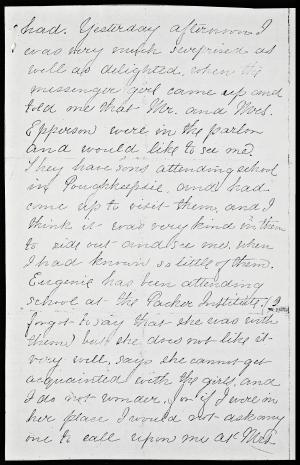 had. Yesterday afternoon I
was very much surprised as
well as delighted, when the
messenger girl came up and
told me that Mr. and Mrs.
Epperson were in the parlor
and would like to see me.
They have sons attending school
in Poughkeepsie, and had
come up to visit them, and I
think it was very kind in them
to ride out and see me, when
I had known so little of them.
Eugenie has been attending
school at the Packer Institute, (I
forgot to say that she was with
them) but she does not like it
very well, says she cannot get
acquainted with the girls, and
I do not wonder, for if I were in
her place I would not ask any
one to call upon me at Mrs.